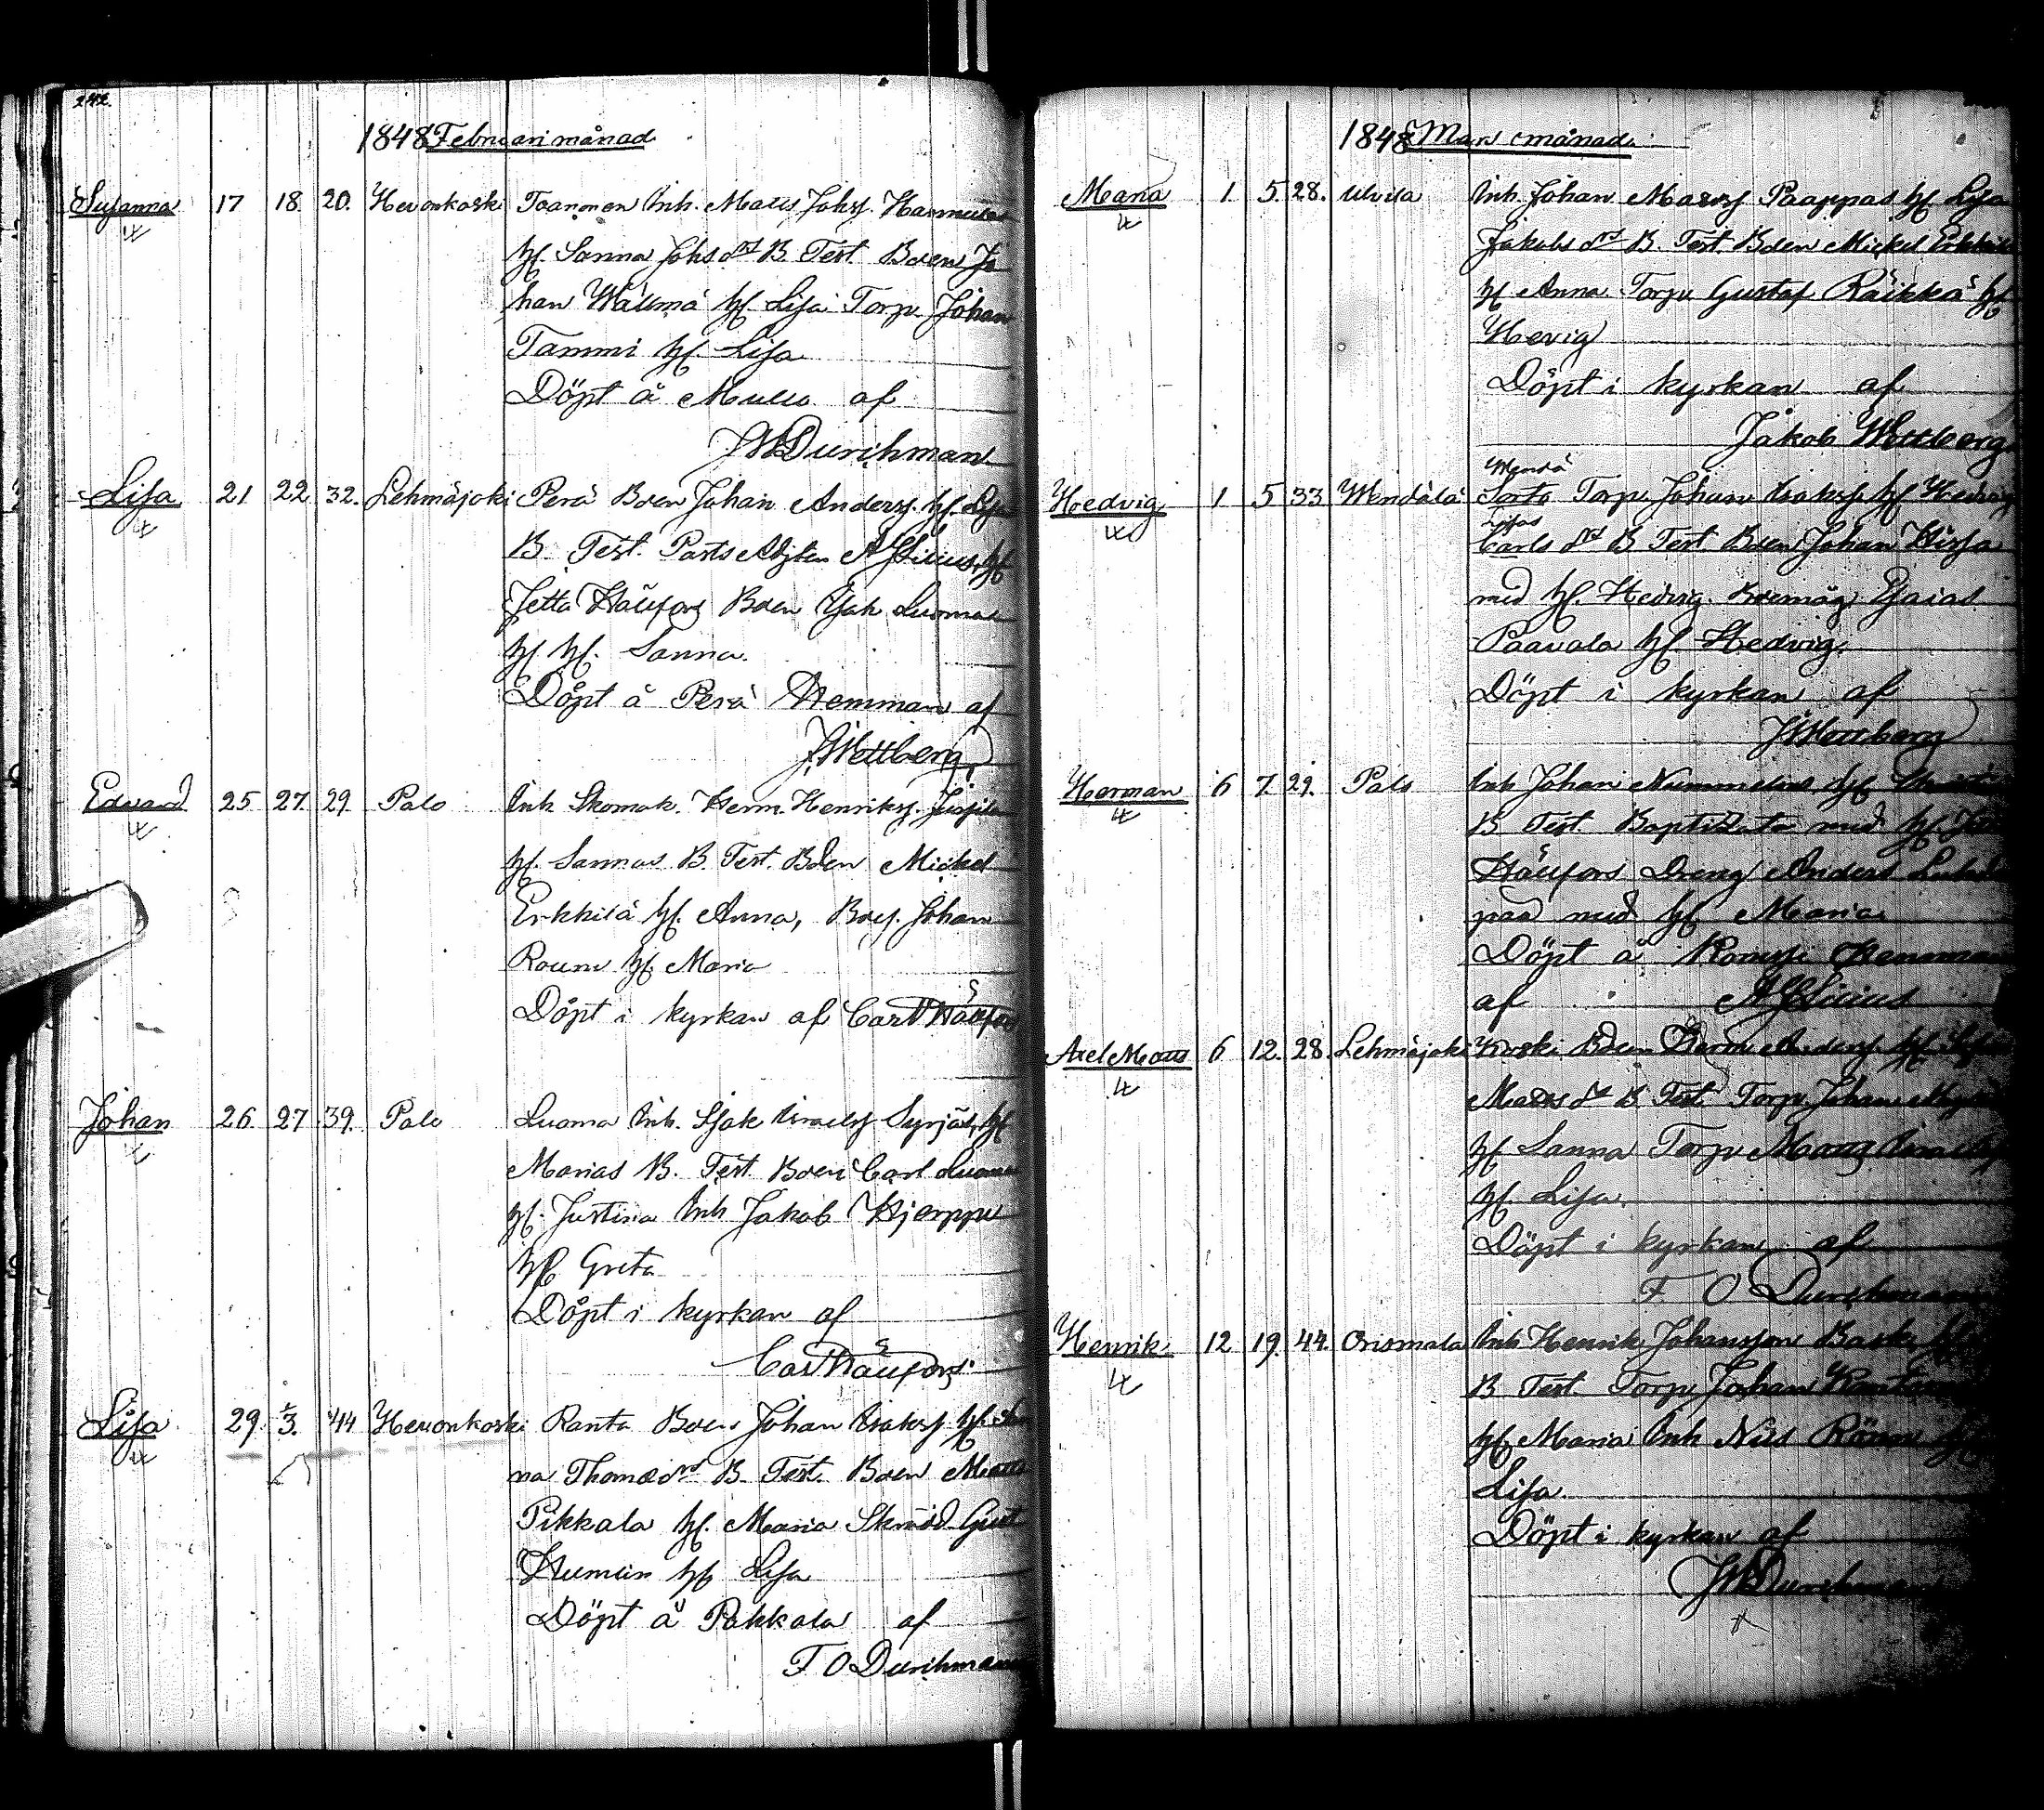 242.
1848 Februari månad
Susanna 17 18 20. Hevonkoski Taanonen Inh. Matts Johsf.
hf. Sanna Johs dr B. Test Bden Jo
han Wällmä hf. Lisa Torp. Johan
Tammi hf. Lisa
Döpt å Mullo af
JWDurchman
Lisa 21 22 32. Lehmäjoki Perä Bden Johan Andersf. hf. Lisa
B. Test. Pasts Adjten hf
Jetta Hällfors Bden Isak Luoma
hf hf. Sanna.
Döpt å Perä Hemman af
J.Wettberg
Edvard 25 27 29. Palo Inh Skomak. Herm. Henriksf.
hf. Sannas B. Test. Bden Mickel
Erkkilä hf. Anna, Bdesf. Johan
Raumn hf. Maria
Döpt i kyrkan af Carl Hällfors
Johan 26. 27 39. Palo Luoma Inh. Isak Israelsf Syrjäs, hf
Marias B. Test Bden Carl Luoma
hf. Justina Inh Jakob Hjerppe
hf Greta
Döpt i kyrkan af
Carl Hällfors
Lisa 29. 1/3. 44 Hevonkoski Ranta Bden Johan Isaksf hf. San
na Thomædr B. Test. Bden Matts
Pikkala hf. Maria Skrädd Gust
hf Lisa
Döpt å Pakkala af
F. O Durchman
1848 Mars månad.
Maria 1 5. 28. Ulvila Inh. Johan Mattsf Paappas hf Lisa
Jakobs dr B. Test. Bden Mickel Erkkilä
hf Anna Torp. Gustaf Räikkä hf
Hevig
Döpt i kyrkan af
Jakob Wettberg
Wendä
Hedvig 1 5 33 Wendälä Torp. Johan Isaksf hf Hedvig
Carls dr B Test Bden Johan Hissa
med hf. Hedvig. Bdemåg Esaias
Paavola hf Hedvig.
Döpt i kyrkan af
J Wettberg
Herman 6 7. 29. Palo Inh Johan Nummelins hf
B Test Baptizata med hf
Hällfors Dreng Anders
paa med hf Maria
Döpt å Hemman
af
Axel Matts 6 12. 28. Lehmäjoki Koski Bden Herm Andersf hf
Matts dr B. Test Torp Johan
hf Sanna Torp Matts
hf. Lisa.
Döpt i kyrkan af
F. O Durchman
Henrik 12 19. 44. Orismala Inh Henrik Johansson Baski hf
B Test Torp. Johan
hf Maria Inh Nils hf
Lisa.
Döpt i kyrkan af
JWDurchman